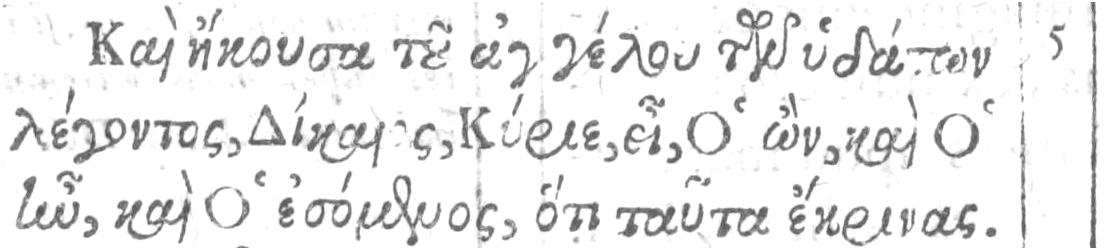 Καὶ ἤκουσα τοῦ ἀγγέλου τῶν ὑδάτων 5
λέγοντος, Δίκαιος, Κύριε, εἶ, Ὁ ὢν, καὶ Ὁ
ἦν, καὶ Ὁ ἐσόμενος, ὅτι ταῦτα ἔκρινας.